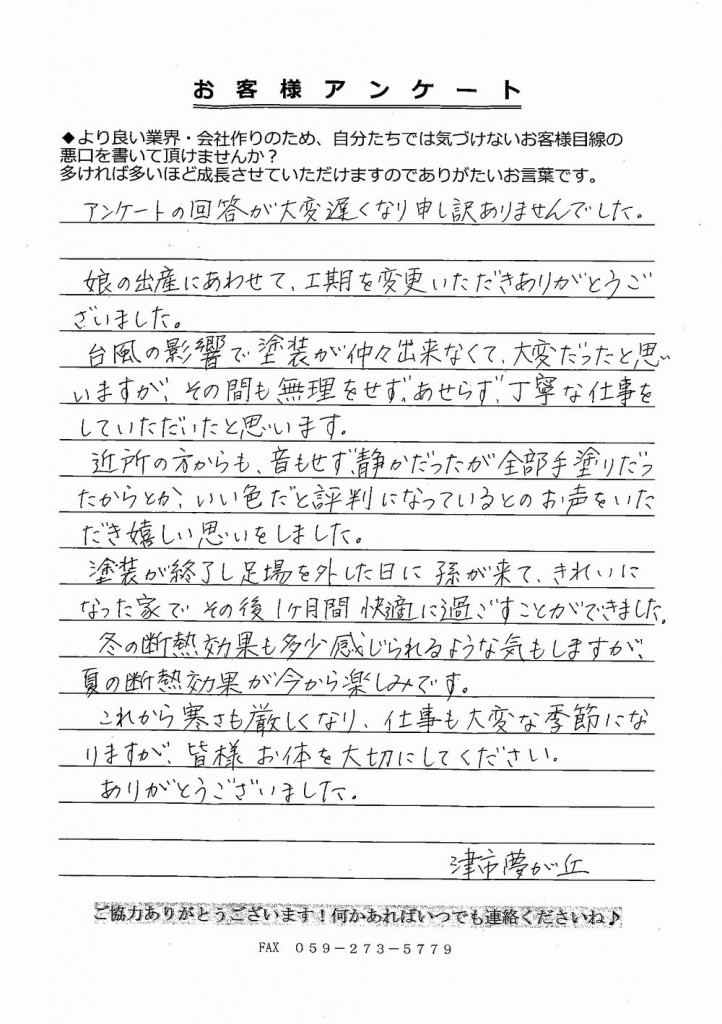 お客様アンケート
◆より良い業界・会社作りのため、自分たちでは気づけないお客様目線の
悪口を書いて頂けませんか？
多ければ多いほど成長させていただけますのでありがたいお言葉です。
アンケートの回答が大変遅くなり申し訳ありませんでした。
娘の出産にあわせて、工期を変更いただきありがとうご
ざいました。
台風の影響で塗装が仲々出来なくて、大変だったと思
いますが、その間も無理をせず、あせらず、丁寧な仕事を
していただいたと思います。
近所の方からも、音もせず、静かだったが全部手塗りだっ
たからとか、いい色だと評判になっているとのお声をいた
だき嬉しい思いをしました。
塗装が終了し足場を外した日に孫が来て、きれいに
なった家でその後1ヶ月間快適に過ごすことができました。
冬の断熱効果も多少感じられるような気もしますが、
夏の断熱効果が今から楽しみです。
これから寒さも厳しくなり、仕事も大変な季節にな
りますが、皆様お体を大切にしてください。
ありがとうございました。
津市夢が丘
ご協力ありがとうございます！何かあればいつでも連絡くださいね♪
FAX 059－273－5779